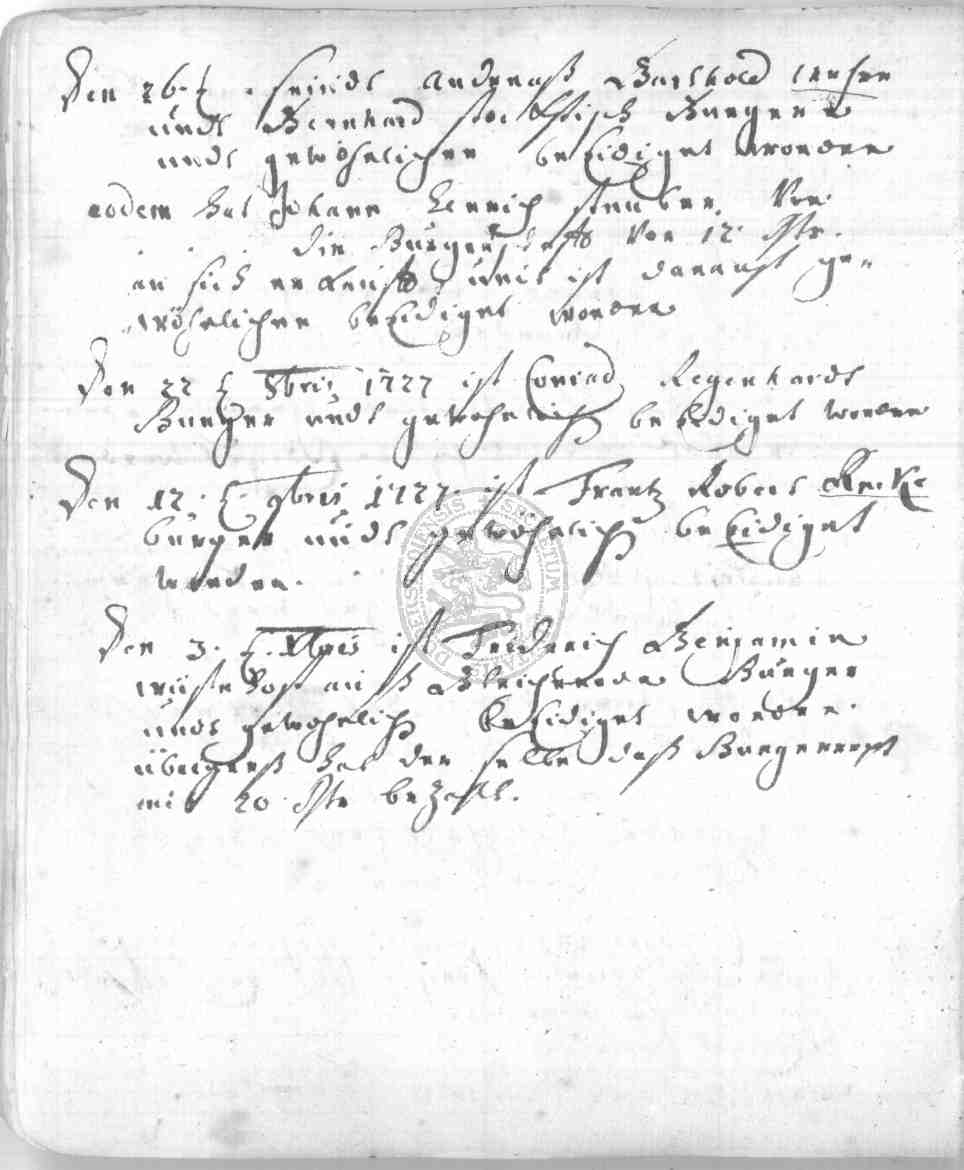 Den 26. t. seindt Andreaß Barthold
undt Bernhard Burger
undt gewöhnlicher beeidiget worden
eodem hat Johann Henrich Vor
die Burgerschafft Vor 12 Rthr.
an sich erkaufft undt ist darauf ge-
wöhnlicher beeidiget worden
Den 22 t. 8bris 1727 ist Conrad Regenhardt
Burger undt gewohnlich beeidiget worden
Den 12. t. 9bris 1727 ist Frantz Robert
burger undt gewöhnlich beeidiget
worden.
Den 3. t. Xbris ist Friderich Benjamin
auß Burger
undt gewohnlich beeidiget worden.
übrigenß hat der selbe daß Burgerrecht
mit 20 Rthr bezahlt.
SIGILLUM UNIVERSITATIS